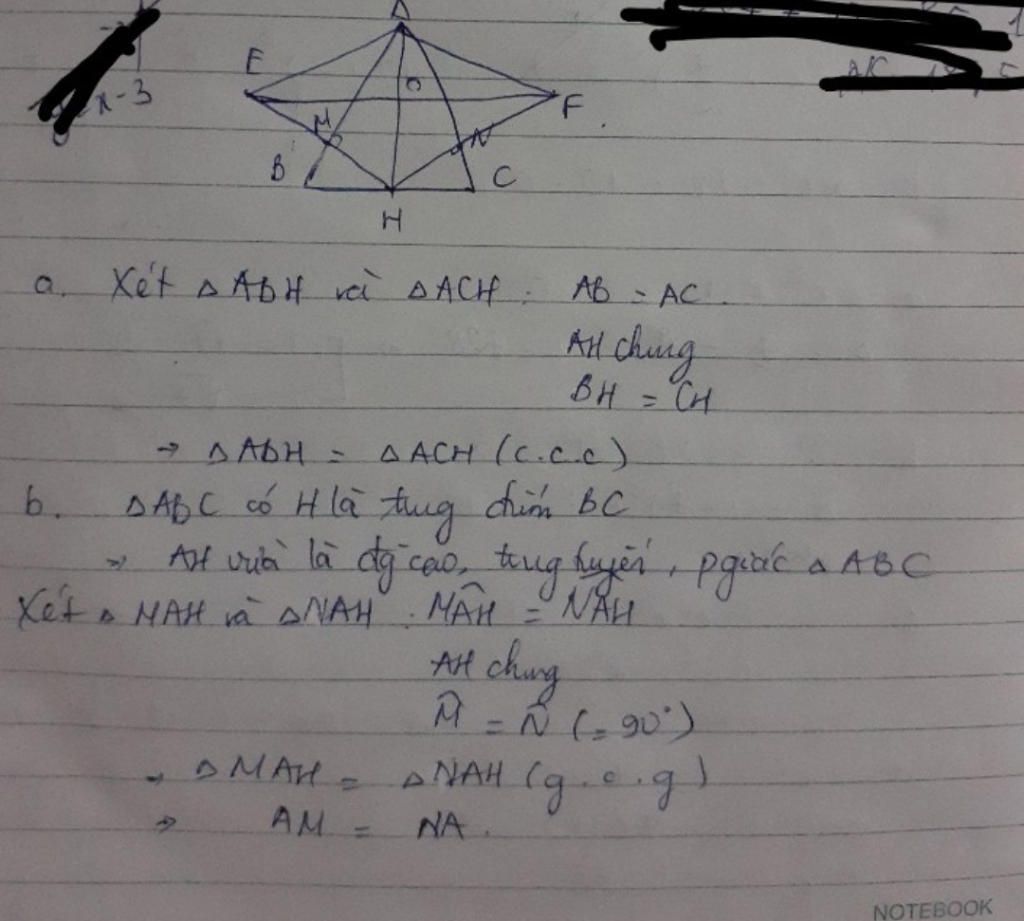 x-3
A
E
O
F
M
N
B
C
H
a. Xét △ABH và △ACH : AB = AC.
AH chung
BH = CH
→ △ABH = △ACH (c.c.c)
b. △ABC có H là trung điểm BC
→ AH vừa là đg cao, trung tuyến, pgiác △ABC
Xét △MAH và △NAH : MÂH = NÂH
AH chung
M̂ = N̂ (= 90°)
→ △MAH = △NAH (g.c.g)
→ AM = NA.
NOTEBOOK